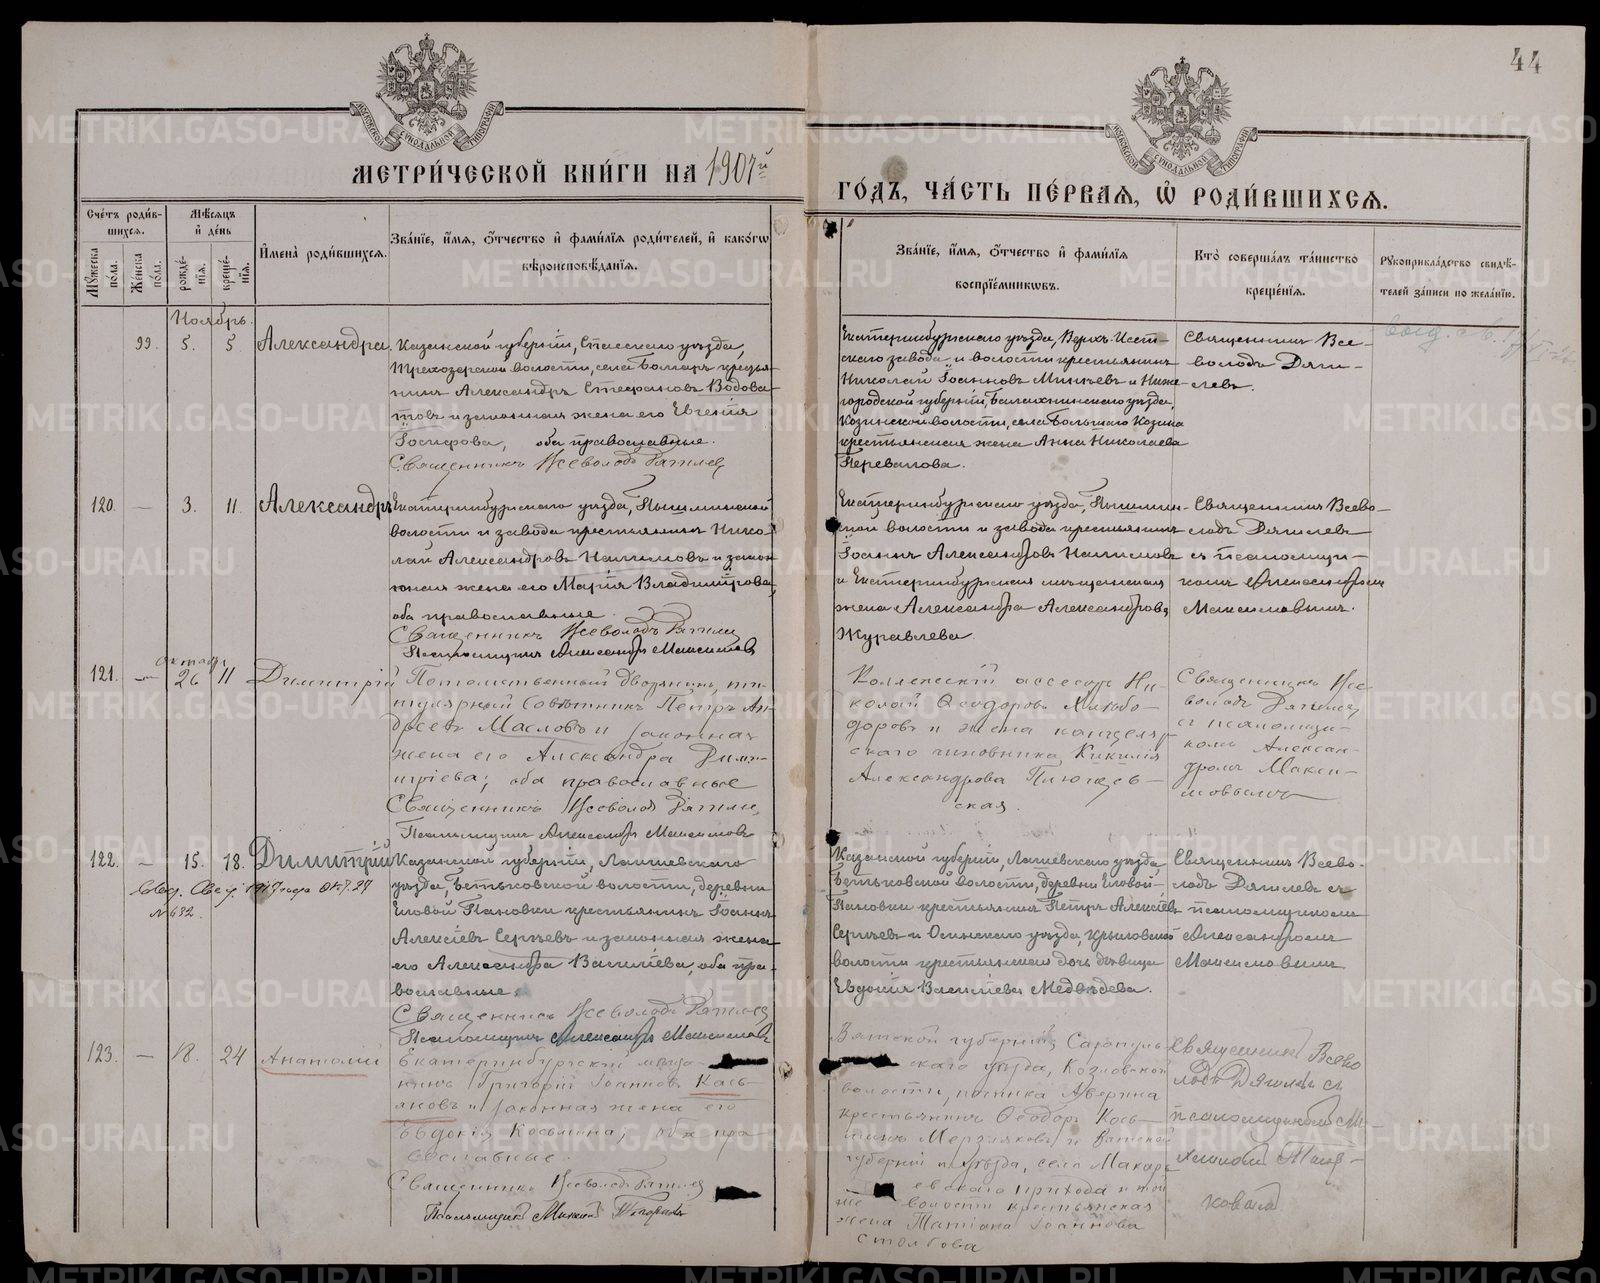 44
МЕТРИЧЕСКОЙ КНИГИ НА 1907й
ГОДЪ, ЧАСТЬ ПЕРВАЯ, Ѡ РОДИВШИХСЯ.
Счетъ родив-
шихся.
Мужеска пола.
Женска пола.
Мѣсяцъ и день
рожденія.
крещенія.
Имена родившихся.
Званіе, имя, отчество и фамилія родителей, и какогѡ
вѣроисповѣданія.
Званіе, имя, отчество и фамилія
воспріемникѡвъ.
Кто совершалъ таинство
крещенія.
Рукоприкладство свидѣ-
телей записи по желанію.
Ноябрь.
99. 5. 5 Александра
Казанской губерніи, Спасскаго уѣзда,
Трехозерской волости, села Болгаръ крестья-
нинъ Александръ Стефановъ Водова-
товъ и законная жена его Евгенія
Іосифова, оба православные.
Священникъ Всеволодъ Дягилев
Екатеринбургскаго уѣзда, Верхъ-Исет-
скаго завода и волости крестьянинъ
Николай Іоанновъ Минѣевъ и Ниже-
городской губерніи, Балахнинскаго уѣзда,
Козинской волости, села Большаго Козина
крестьянская жена Анна Николаева
Перевалова.
Священникъ Все-
володъ Дяги-
левъ.
120. — 3. 11. Александръ
Екатеринбургскаго уѣзда, Пышминской
волости и завода крестьянинъ Нико-
лай Александровъ Налимовъ и закон-
ная жена его Марія Владимірова,
оба православные.
Священникъ Всеволодъ Дягилев
Псаломщикъ Александръ Максимов
Екатеринбургскаго уѣзда, Пышмин-
ской волости и завода крестьянинъ
Іоаннъ Александровъ Налимовъ
и Екатеринбургская мѣщанская
жена Александра Александрова
Журавлева.
Священникъ Всево-
лодъ Дягилевъ
съ псаломщи-
комъ Александромъ
Максимовымъ.
октябр
121. — 26 11 Димитрій
Потомственный дворянинъ, ти-
тулярный совѣтникъ Петръ Ан-
дреевъ Масловъ и законная
жена его Александра Дими-
тріева; оба православные
Священникъ Всеволод Дягилев
Псаломщикъ Александръ Максимовъ
Коллежскій ассесоръ Ни-
колай Ѳеодоровъ
доровъ и жена канцеляр-
скаго чиновника Кикилія
Александрова Плющев-
ская.
Священникъ Все-
володъ Дягилев
съ псаломщи-
комъ Алексан-
дромъ Макси-
мовымъ
122. — 15. 18. Димитрій
1917 года Окт. 27
№ 632.
Казанской губерніи, Лаишевскаго
уѣзда, Бетьковской волости, деревни
Еловой Пановки крестьянинъ Іоаннъ
Алексіевъ Сергѣевъ и законная жена
его Александра Василіева, оба пра-
вославные.
Священникъ Всеволодъ Дягилев
Псаломщикъ Александръ Максимовъ
Казанской губерніи, Лаишевскаго уѣзда,
Бетьковской волости, деревни Еловой-
Пановки крестьянинъ Петръ Алексіевъ
Сергѣевъ и Осинскаго уѣзда, Крыловской
волости крестьянская дочь дѣвица
Евдокія Василіева Медвѣдева.
Священникъ Всево-
лодъ Дягилевъ съ
псаломщикомъ
Александромъ
Максимовымъ
123. — 18. 24 Анатолій
Екатеринбургскій мѣща-
нинъ Григорій Іоанновъ Кась-
яновъ и законная жена его
Евдокія Косьмина, оба пра
вославные.
Священникъ Всеволодъ Дягилев
Псаломщикъ
Вятской губерніи, Сарапуль-
скаго уѣзда, Козловской
волости, починка Аверина
крестьянинъ Ѳеодоръ Кось-
минъ Мерзляковъ и Вятской
губерніи и уѣзда, села Макарь
евскаго прихода и той
же волости крестьянская
жена Татіана Іоаннова
Столбова
Священникъ Всево
лодъ Дягилевъ съ
псаломщикомъ